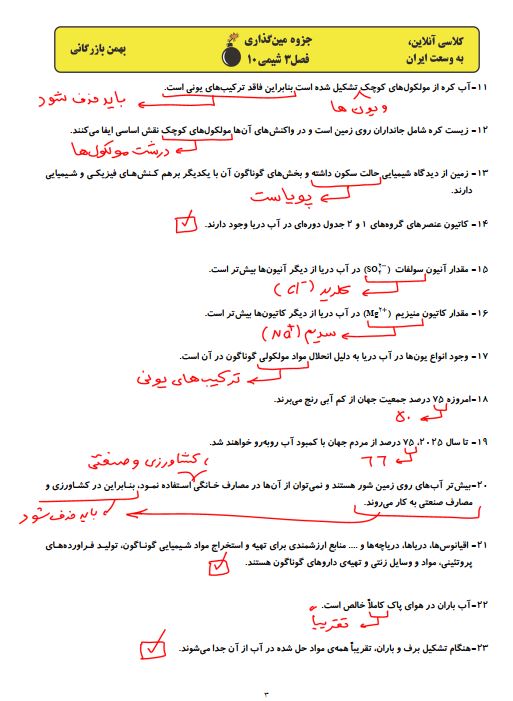 کلاسی آنلاین،
به وسعت ایران
جزوه مین‌گذاری
فصل۳ شیمی۱۰
بهمن بازرگانی
۱۱- آب کره از مولکول‌های کوچک تشکیل شده است بنابراین فاقد ترکیب‌های یونی است.
و یون ها
باید حذف شود
۱۲- زیست کره شامل جانداران روی زمین است و در واکنش‌های آن‌ها مولکول‌های کوچک نقش اساسی ایفا می‌کنند.
درشت مولکول‌ها
۱۳- زمین از دیدگاه شیمیایی حالت سکون داشته و بخش‌های گوناگون آن با یکدیگر برهم کنش‌های فیزیکی و شیمیایی
دارند.
پویاست
۱۴- کاتیون عنصرهای گروه‌های ۱ و ۲ جدول دوره‌ای در آب دریا وجود دارند.
۱۵- مقدار آنیون سولفات (SO₄²⁻) در آب دریا از دیگر آنیون‌ها بیش‌تر است.
کلرید (Cl⁻)
۱۶- مقدار کاتیون منیزیم (Mg²⁺) در آب دریا از دیگر کاتیون‌ها بیش‌تر است.
سدیم (Na⁺)
۱۷- وجود انواع یون‌ها در آب دریا به دلیل انحلال مواد مولکولی گوناگون در آن است.
ترکیب‌های یونی
۱۸-امروزه ۷۵ درصد جمعیت جهان از کم آبی رنج می‌برند.
۵۰
۱۹- تا سال ۲۰۲۵، ۷۵ درصد از مردم جهان با کمبود آب روبه‌رو خواهند شد.
۶۶
، کشاورزی و صنعتی
۲۰-بیش‌تر آب‌های روی زمین شور هستند و نمی‌توان از آن‌ها در مصارف خانگی استفاده نمود، بنابراین در کشاورزی و
مصارف صنعتی به کار می‌روند.
باید حذف شود
۲۱- اقیانوس‌ها، دریاها، دریاچه‌ها و .... منابع ارزشمندی برای تهیه و استخراج مواد شیمیایی گوناگون، تولید فراورده‌های
پروتئینی، مواد و وسایل زنتی و تهیه‌ی داروهای گوناگون هستند.
۲۲-آب باران در هوای پاک کاملاً خالص است.
تقریباً
۲۳-هنگام تشکیل برف و باران، تقریباً همه‌ی مواد حل شده در آب از آن جدا می‌شوند.
۳